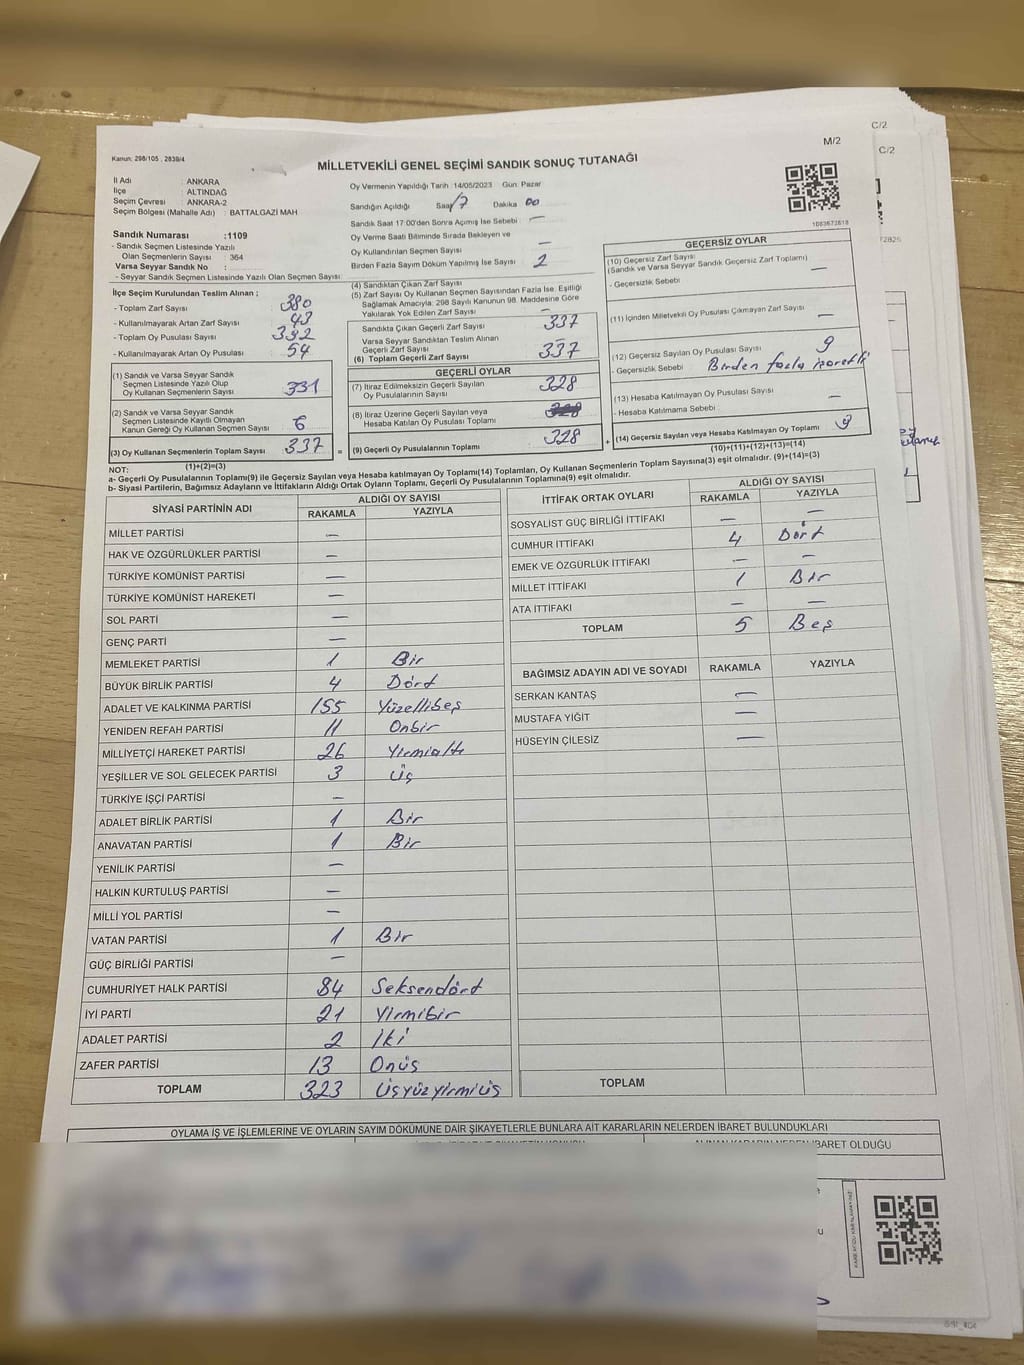 C/2
M/2
C/2
Kanun: 298/105 , 2839/4
MİLLETVEKİLİ GENEL SEÇİMİ SANDIK SONUÇ TUTANAĞI
İl Adı : ANKARA
İlçe : ALTINDAĞ
Seçim Çevresi : ANKARA-2
Seçim Bölgesi (Mahalle Adı) : BATTALGAZİ MAH
Sandık Numarası :1109
- Sandık Seçmen Listesinde Yazılı
Olan Seçmenlerin Sayısı : 364
Varsa Seyyar Sandık No :
- Seyyar Sandık Seçmen Listesinde Yazılı Olan Seçmen Sayısı:
Oy Vermenin Yapıldığı Tarih :14/05/2023 Gün: Pazar
Sandığın Açıldığı Saat 17 Dakika 00
Sandık Saat 17:00'den Sonra Açımış İse Sebebi : —
Oy Verme Saati Bitiminde Sırada Bekleyen ve
Oy Kullandırılan Seçmen Sayısı —
Birden Fazla Sayım Döküm Yapılmış İse Sayısı : 2
1083672818
İlçe Seçim Kurulundan Teslim Alınan ;
- Toplam Zarf Sayısı : 380
- Kullanılmayarak Artan Zarf Sayısı : 43
- Toplam Oy Pusulası Sayısı : 382
- Kullanılmayarak Artan Oy Pusulası : 54
(1) Sandık ve Varsa Seyyar Sandık
Seçmen Listesinde Yazılı Olup
Oy Kullanan Seçmenlerin Sayısı : 331
(2) Sandık ve Varsa Seyyar Sandık
Seçmen Listesinde Kayıtlı Olmayan
Kanun Gereği Oy Kullanan Seçmen Sayısı : 6
(3) Oy Kullanan Seçmenlerin Toplam Sayısı : 337
(1)+(2)=(3)
(4) Sandıktan Çıkan Zarf Sayısı
(5) Zarf Sayısı Oy Kullanan Seçmen Sayısından Fazla İse, Eşitliği
Sağlamak Amacıyla; 298 Sayılı Kanunun 98. Maddesine Göre
Yakılarak Yok Edilen Zarf Sayısı : —
Sandıkta Çıkan Geçerli Zarf Sayısı : 337
Varsa Seyyar Sandıktan Teslim Alınan
Geçerli Zarf Sayısı : —
(6) Toplam Geçerli Zarf Sayısı : 337
GEÇERLİ OYLAR
(7) İtiraz Edilmeksizin Geçerli Sayılan
Oy Pusulalarının Sayısı : 328
(8) İtiraz Üzerine Geçerli Sayılan veya
Hesaba Katılan Oy Pusulası Toplamı :
= (9) Geçerli Oy Pusulalarının Toplamı : 328
GEÇERSİZ OYLAR
(10) Geçersiz Zarf Sayısı
(Sandık ve Varsa Seyyar Sandık Geçersiz Zarf Toplamı) —
- Geçersizlik Sebebi :
(11) İçinden Milletvekili Oy Pusulası Çıkmayan Zarf Sayısı : —
(12) Geçersiz Sayılan Oy Pusulası Sayısı : 9
- Geçersizlik Sebebi : Birden fazla işaretli
(13) Hesaba Katılmayan Oy Pusulası Sayısı : —
- Hesaba Katılmama Sebebi :
+ (14) Geçersiz Sayılan veya Hesaba Katılmayan Oy Toplamı : 9
(10)+(11)+(12)+(13)=(14)
NOT:
a- Geçerli Oy Pusulalarının Toplamı(9) ile Geçersiz Sayılan veya Hesaba katılmayan Oy Toplamı(14) Toplamları, Oy Kullanan Seçmenlerin Toplam Sayısına(3) eşit olmalıdır. (9)+(14)=(3)
b- Siyasi Partilerin, Bağımsız Adayların ve İttifakların Aldığı Ortak Oyların Toplamı, Geçerli Oy Pusulalarının Toplamına(9) eşit olmalıdır.
SİYASİ PARTİNİN ADI ALDIĞI OY SAYISI
RAKAMLA YAZIYLA
MİLLET PARTİSİ —
HAK VE ÖZGÜRLÜKLER PARTİSİ —
TÜRKİYE KOMÜNİST PARTİSİ —
TÜRKİYE KOMÜNİST HAREKETİ —
SOL PARTİ —
GENÇ PARTİ —
MEMLEKET PARTİSİ 1 Bir
BÜYÜK BİRLİK PARTİSİ 4 Dört
ADALET VE KALKINMA PARTİSİ 155 Yüzellibeş
YENİDEN REFAH PARTİSİ 11 Onbir
MİLLİYETÇİ HAREKET PARTİSİ 26 Yirmialtı
YEŞİLLER VE SOL GELECEK PARTİSİ 3 üş
TÜRKİYE İŞÇİ PARTİSİ —
ADALET BİRLİK PARTİSİ 1 Bir
ANAVATAN PARTİSİ 1 Bir
YENİLİK PARTİSİ —
HALKIN KURTULUŞ PARTİSİ —
MİLLİ YOL PARTİSİ —
VATAN PARTİSİ 1 Bir
GÜÇ BİRLİĞİ PARTİSİ —
CUMHURİYET HALK PARTİSİ 84 Seksendört
İYİ PARTİ 21 Yirmibir
ADALET PARTİSİ 2 İki
ZAFER PARTİSİ 13 Onüş
TOPLAM 323 üşyüzyirmiüş
İTTİFAK ORTAK OYLARI ALDIĞI OY SAYISI
RAKAMLA YAZIYLA
SOSYALİST GÜÇ BİRLİĞİ İTTİFAKI — —
CUMHUR İTTİFAKI 4 Dört
EMEK VE ÖZGÜRLÜK İTTİFAKI — —
MİLLET İTTİFAKI 1 Bir
ATA İTTİFAKI — —
TOPLAM 5 Beş
BAĞIMSIZ ADAYIN ADI VE SOYADI RAKAMLA YAZIYLA
SERKAN KANTAŞ —
MUSTAFA YİĞİT —
HÜSEYİN ÇİLESİZ —
TOPLAM
OYLAMA İŞ VE İŞLEMLERİNE VE OYLARIN SAYIM DÖKÜMÜNE DAİR ŞİKAYETLERLE BUNLARA AİT KARARLARIN NELERDEN İBARET BULUNDUKLARI